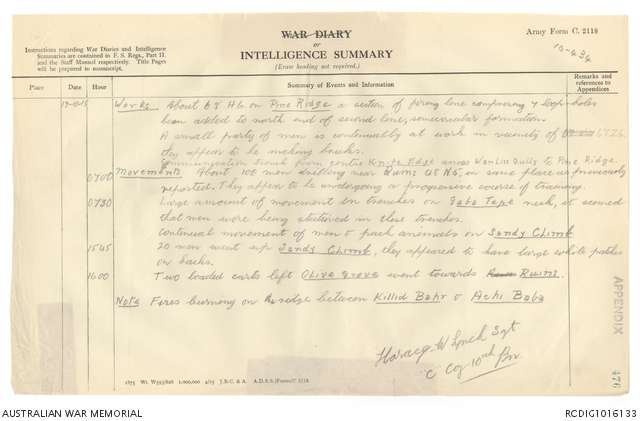 WAR DIARY
or
INTELLIGENCE SUMMARY
(Erase heading not required.)
Army Form C. 2118
Instructions regarding War Diaries and Intelligence
Summaries are contained in F. S. Regs., Part II.
and the Staff Manual respectively. Title Pages
will be prepared in manuscript.
Place Date Hour Summary of Events and Information Remarks and references to Appendices
17-10-15 Works. About 69 A6 on Pine Ridge a section of firing line comprising 4 loop-holes
been added to north end of second line, semicircular formation.
A small party of men is continually at work in vicinity of 67Z6
they appear to be making bricks.
Communication trench from centre Knife Edge across Wanliss Gully to Pine Ridge
0700 Movements About 100 men drilling near Ruins at N5, in same place as previously
reported. They appear to be undergoing a progressive course of training.
0730 Large amount of movement in trenches on Gaba Tepe neck, it seemed
that men were being stationed in these trenches.
Continual movement of men & pack animals on Sandy Climb
1545 20 men went up Sandy Climb, they appeared to have large white patches
on backs.
1600 Two loaded carts left Olive Grove went towards Ruins.
Note Fires burning on the ridge between Killid Bahr & Achi Baba
Horace W Lynch Sgt
"C" Coy 10th Bn
APPENDIX
476
1875 Wt. W593/826 1,000,000 4/15 J.B.C. & A. A.D.S.S./Forms/C. 2118.
AUSTRALIAN WAR MEMORIAL
RCDIG1016133